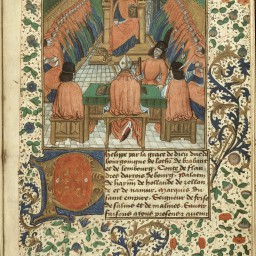 Phelippe par la grace de dieu duc de
bourgoingne de lothr de brabant
et de lembourg Conte de flan
dres dartois de bourg palatin
de haynn de hollande de zellan
et de namur marquis du
saint empire Seigneur de frise
de salins et de malines Savoir
faisons a tous presens et avenir